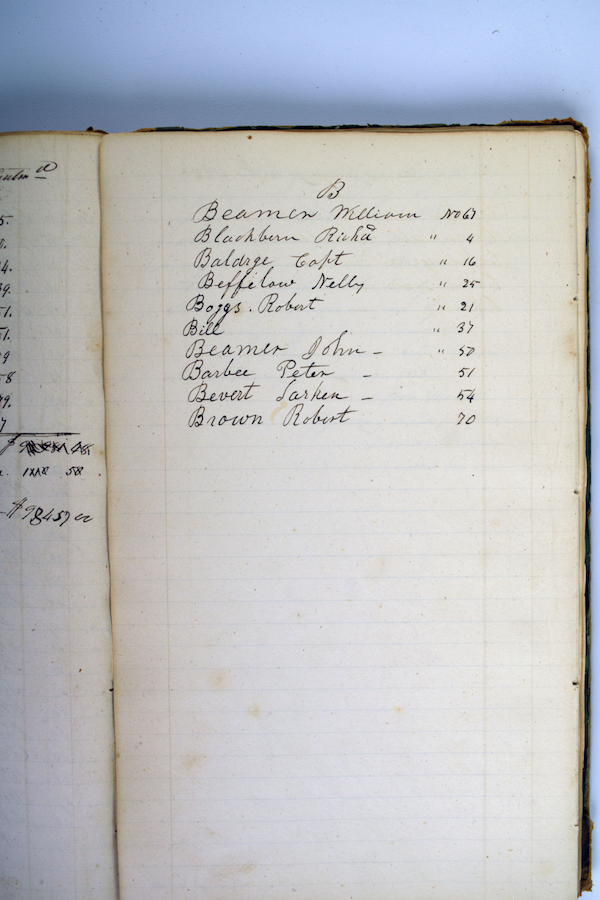 5.
4.
9.
1.
1.
9
58
79.
7
58
$98457
B
Beamer William No 67
Blackbern Richd " 4
Baldrge Capt " 16
Beffelow Nelly " 25
Boggs. Robert " 21
Bill " 37
Beamer John – " 50
Barbee Peter – 51
Bevert Larken – 54
Brown Robert 70